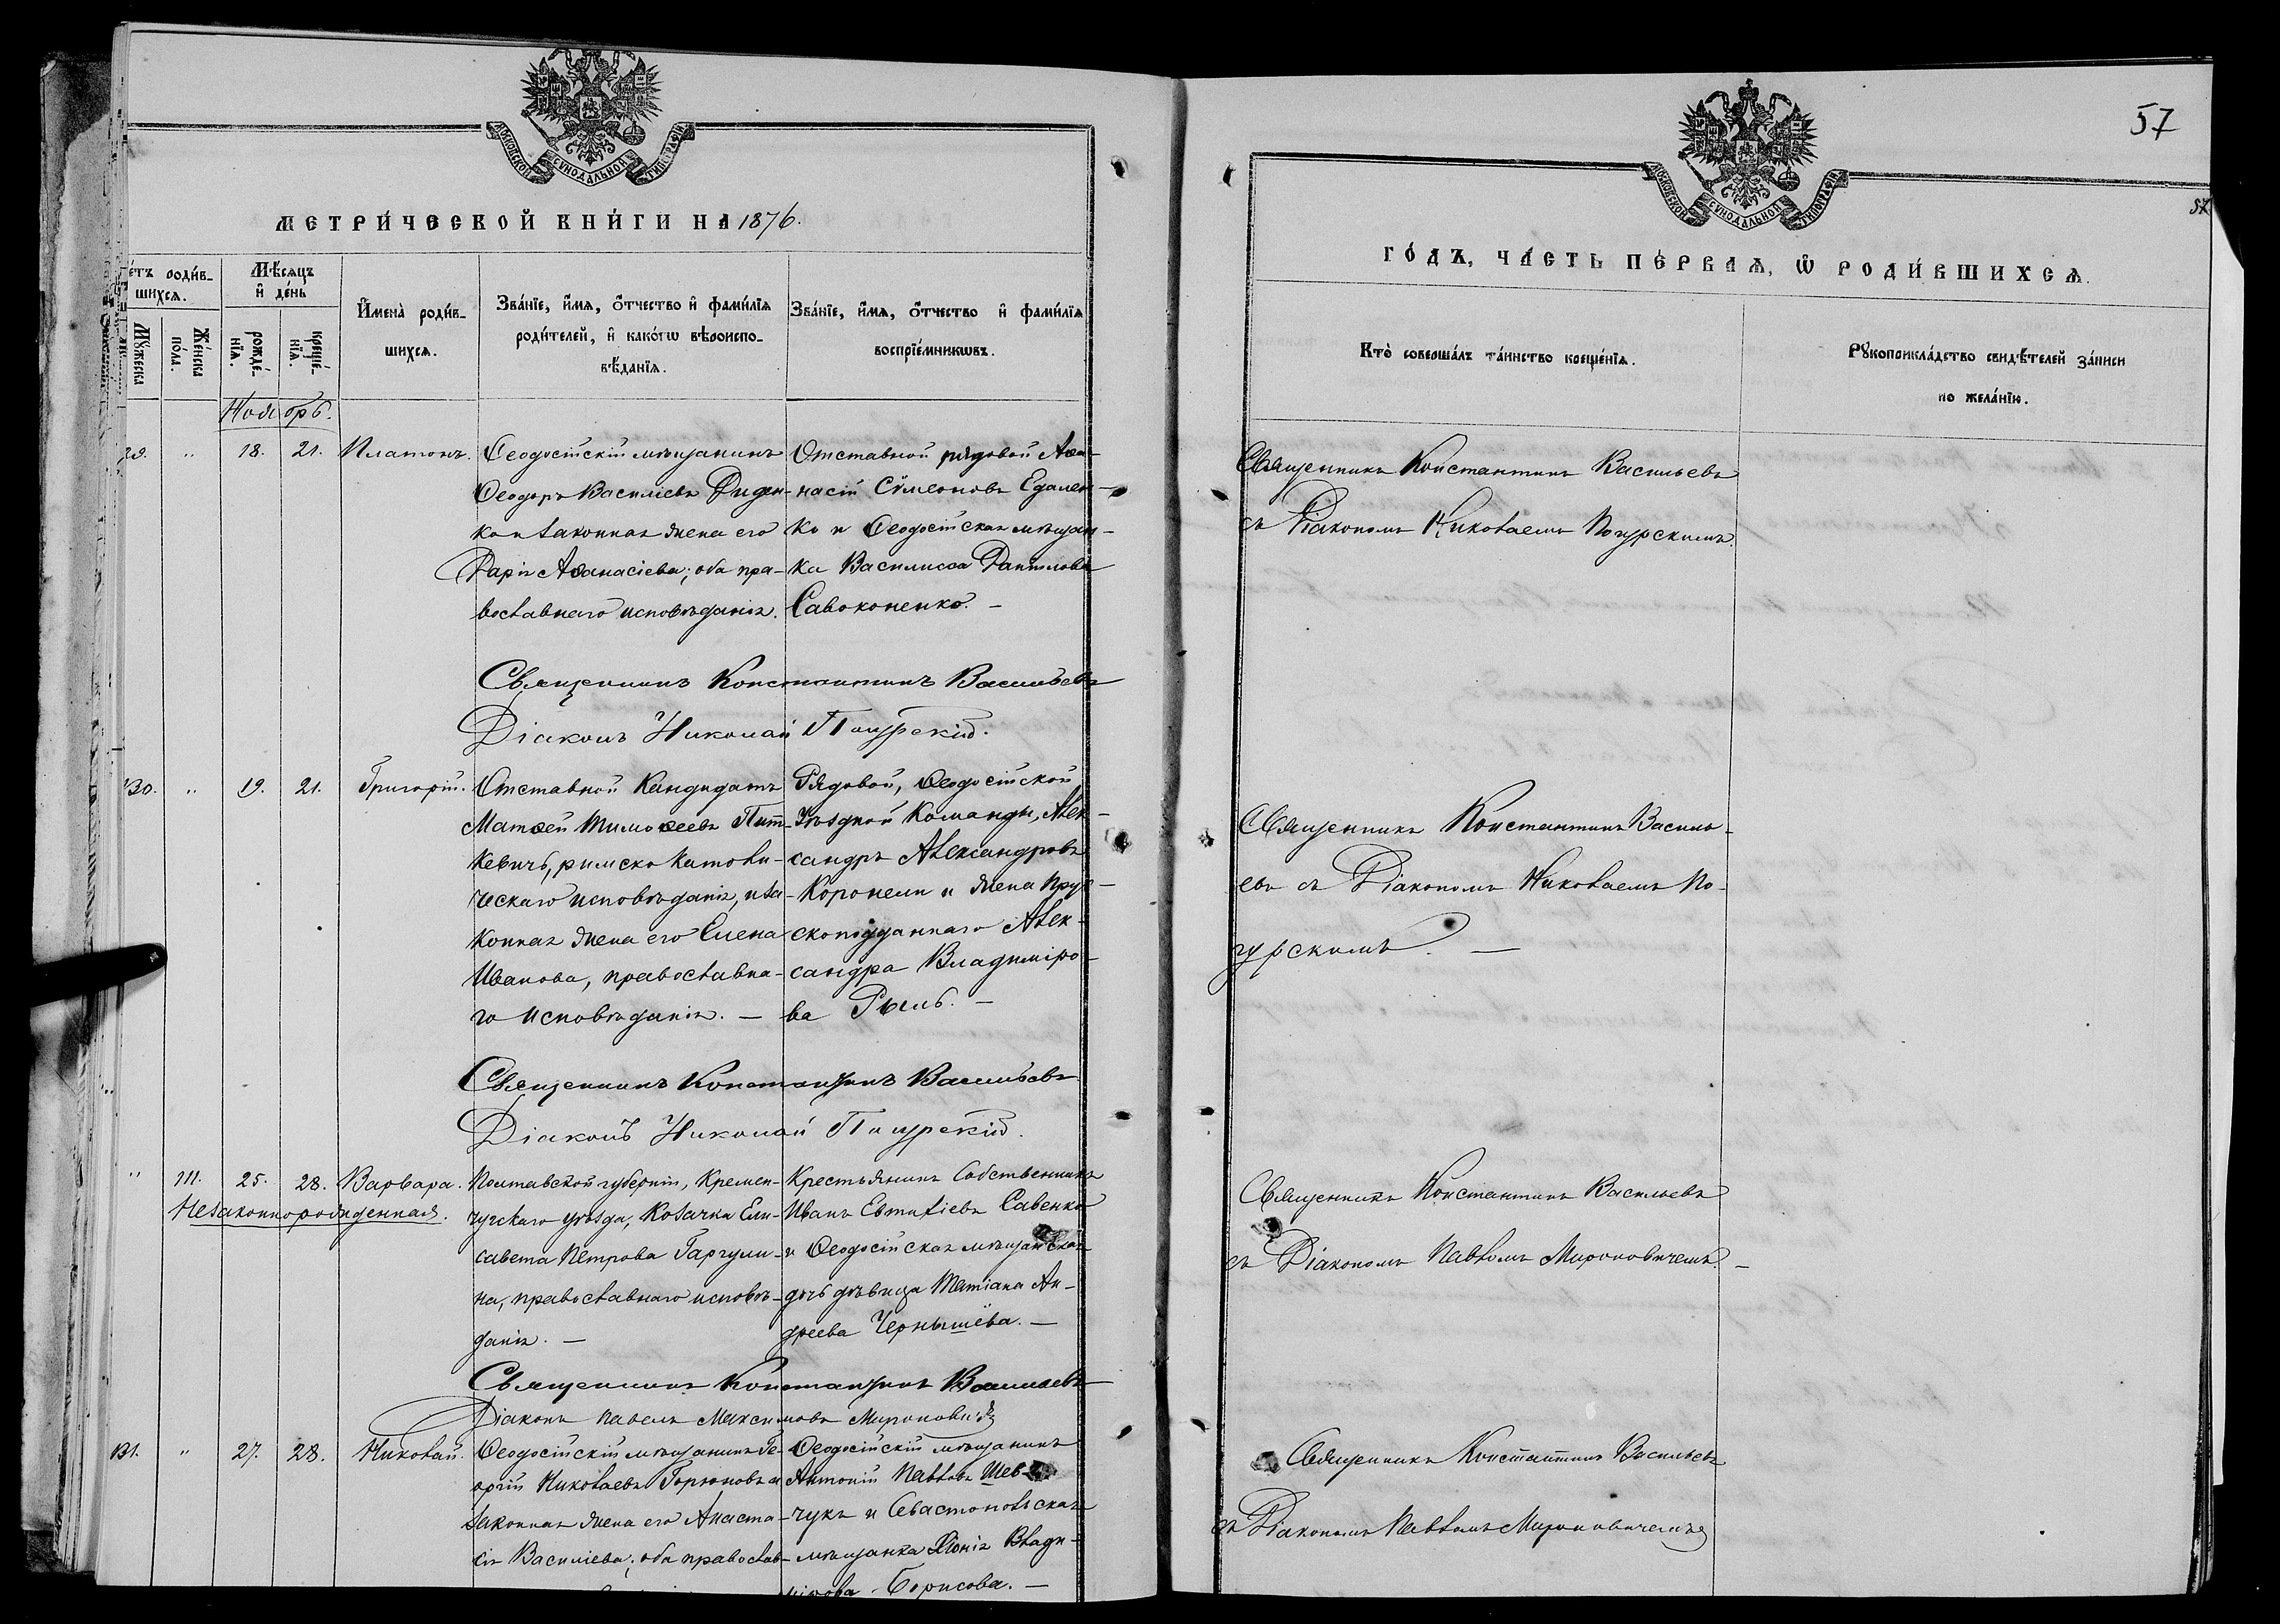 МОСКОВСКОЙ СѴНОДАЛЬНОЙ ТИПОГРАФІИ
МЕТРИ́ЧЕСКОЙ КНИ́ГИ НА 1876.
е́тъ роди́в-
шихсѧ.
Мꙋжеска
Же́нска
по́ла.
Мѣ́сѧцъ
и҆ де́нь
рожде́-
нїѧ.
креще́-
нїѧ.
И҆мена̀ роди́в-
шихсѧ.
Зва́нїе, и҆́мѧ, ѻ҆́тчество и҆ фами́лїѧ
роди́телей, и҆ како́гѡ вѣроиспо-
вѣ́данїѧ.
Зва́нїе, и҆́мѧ, ѻ҆́тчество и҆ фами́лїѧ
воспрїе́мникѡвъ.
Ноябрь.
29. " 18. 21. Платонъ.
Ѳеодосійскій мѣщанинъ
Ѳеодоръ Василіевъ Диден-
ко и законная жена его
Дарія Аѳанасіева; оба пра-
вославнаго исповѣданія.
Отставной рядовой Аѳа-
насій Сѵмеоновъ Едамен-
ко и Ѳеодосійская мѣщан-
ка Василисса Даніилова
Савоконенко. —
Священникъ Константинъ Васильевъ
Діаконъ Николай Погурскій.
130. " 19. 21. Григорій.
Отставной Кандидатъ
Матѳей Тимоѳеевъ Пит-
кевичъ, римско католи-
ческаго исповѣданія, и за-
конная жена его Елена
Иванова, православна-
го исповѣданія. —
Рядовой, Ѳеодосійской
Уѣздной Команды, Алек-
сандръ Александровъ
Коронели и жена Прус-
скоподданнаго Алек-
сандра Владиміро-
ва Рыль. —
Священникъ Константинъ Васильевъ
Діаконъ Николай Погурскій.
" 111. 25. 28. Варвара.
Незаконнорожденная.
Полтавской губерніи, Кремен-
чугскаго уѣзда, Козачка Ели-
савета Петрова Гаргули-
на, православнаго исповѣ-
данія. —
Крестьянинъ Собственникъ
Иванъ Евтихіевъ Савенко
и Ѳеодосійская мѣщанская
дочь дѣвица Татіана Ан-
дреева Чернышёва. —
Священникъ Константинъ Васильевъ
Діаконъ Павелъ Максимовъ Мироновичъ
131. " 27. 28. Николай.
Ѳеодосійскій мѣщанинъ Ге-
оргій Николаевъ Горюновъ и
законная жена его Анаста-
сія Василіева; оба православ-
Ѳеодосійскій мѣщанинъ
Антоній Павловъ Шев-
чукъ и Севастопольская
мѣщанка Хіонія Влади-
мірова Борисова. —
57
57
МОСКОВСКОЙ СѴНОДАЛЬНОЙ ТИПОГРАФІИ
ГО́ДЪ, ЧА́СТЬ ПЕ́РВАѦ, Ѡ҆ РОДИ́ВШИХСѦ.
Кто̀ соверша́лъ та́инство креще́нїѧ.
Рꙋкоприкла́дство свидѣ́телей за́писи
по жела́нїю.
Священникъ Константинъ Васильевъ
съ Діакономъ Николаемъ Погурскимъ.
Священникъ Константинъ Василь-
евъ съ Діакономъ Николаемъ По-
гурскимъ. —
Священникъ Константинъ Васильевъ
съ Діакономъ Павломъ Мироновичемъ. —
Священникъ Константинъ Васильевъ
съ Діакономъ Павломъ Мироновичемъ